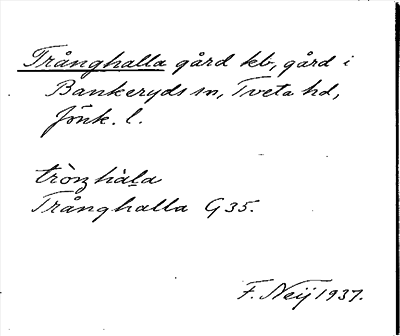 Trånghalla gård kb, gård i
Bankeryds sn, Tveta hd,
Jönk. l.
Trånghalla G 35.
F. Neij 1937.